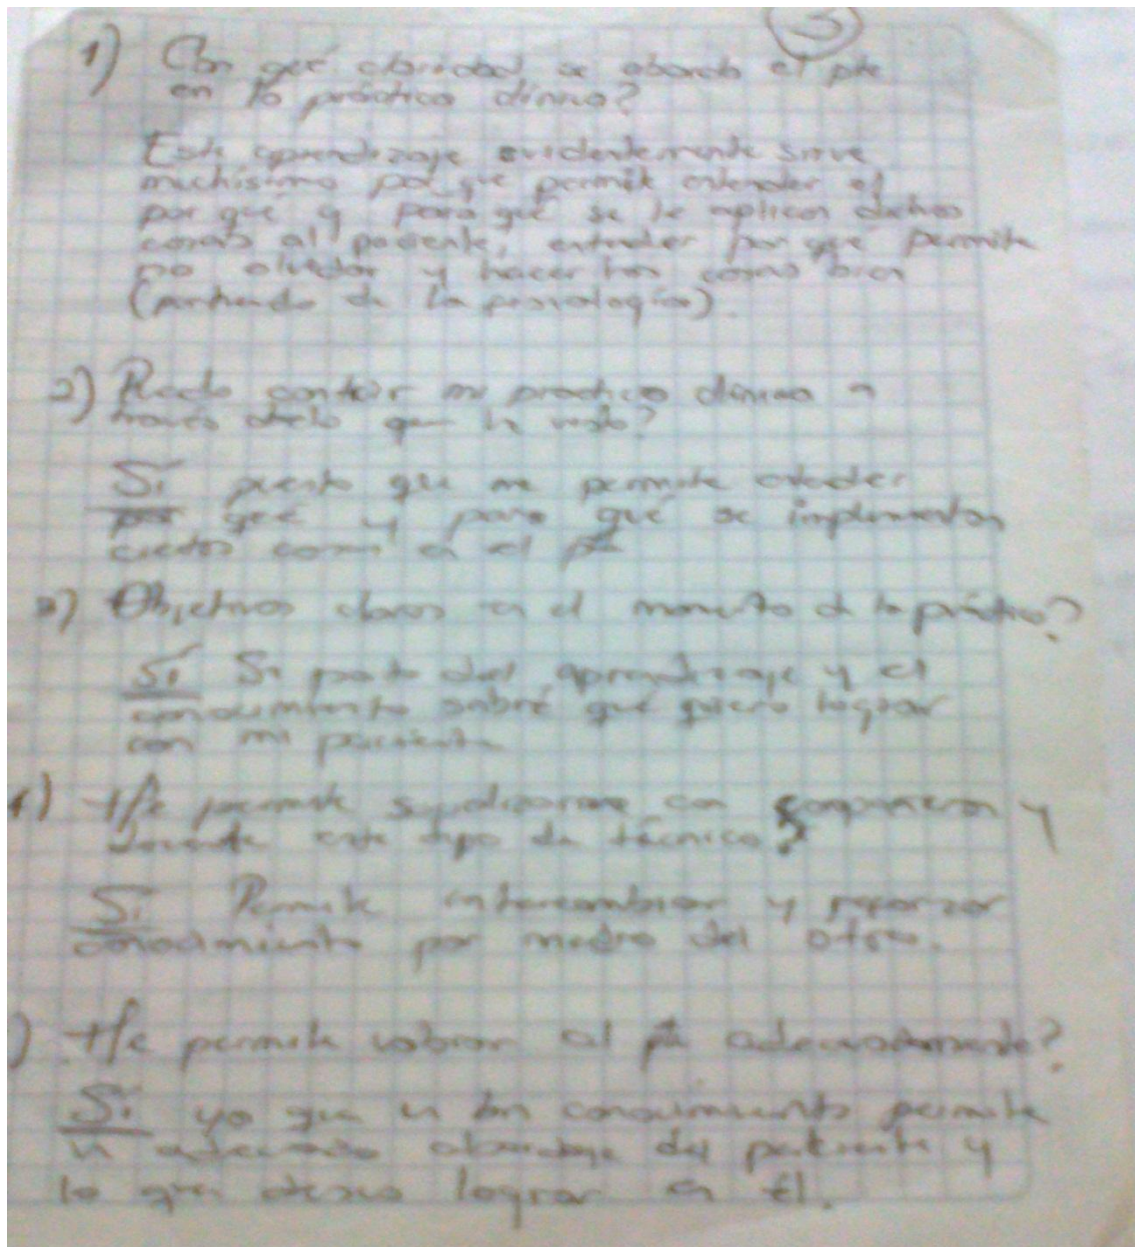 3
1) Con qué claridad se aborda el pte
en la práctica clínica?
Este aprendizaje evidentemente sirve
muchísimo por que permite entender el
por qué y para qué se le aplican dichas
cosas al paciente, entender por que permite
no olvidar y hacer las cosas bien
(partiendo de la fisiología).
2) Puedo mi práctica clínica a
través de lo que he visto?
Sí puesto que me permite entender
por qué y para qué se implementan
ciertas cosas en el pte
3) Objetivos claros en el momento de la práctica?
Sí Si parto del aprendizaje y el
conocimiento sobre qué quiero lograr
con mi paciente
4) Me permite con compañeros y
docente este tipo de técnica?
Sí Permite intercambiar y reforzar
conocimiento por medio del otro.
) Me permite valorar al pte adecuadamente?
Sí ya que un bn conocimiento permite
un adecuado abordaje del paciente y
lo que deseo lograr en él.